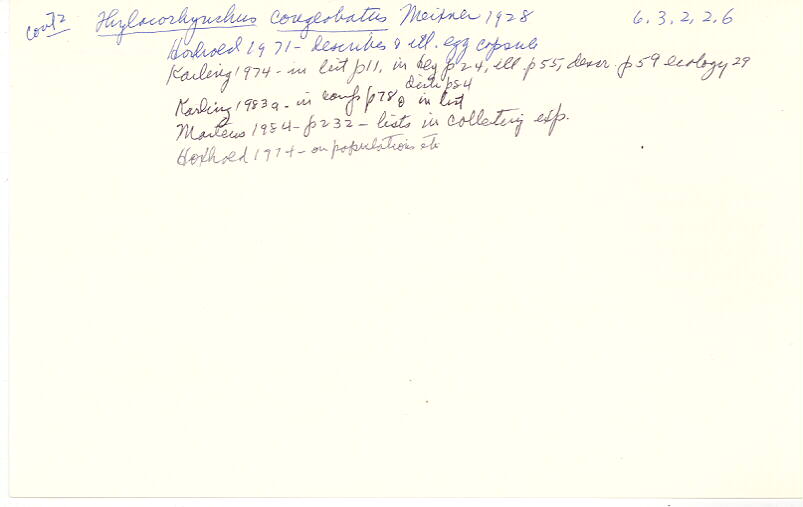 cont2 Thylacorhynchus conglobatus Meixner 1928 6.3.2.2.6
Hoxhold 1971- describes & ill. egg capsule
Karling 1974 - in list p11, in key p24, ill p55, descr. p59 ecology 29
distr p84
Karling 1983a - in comp p78, in list
Martens 1984 - p232 - lists in collecting exp.
Hoxhold 1974 - on populations etc